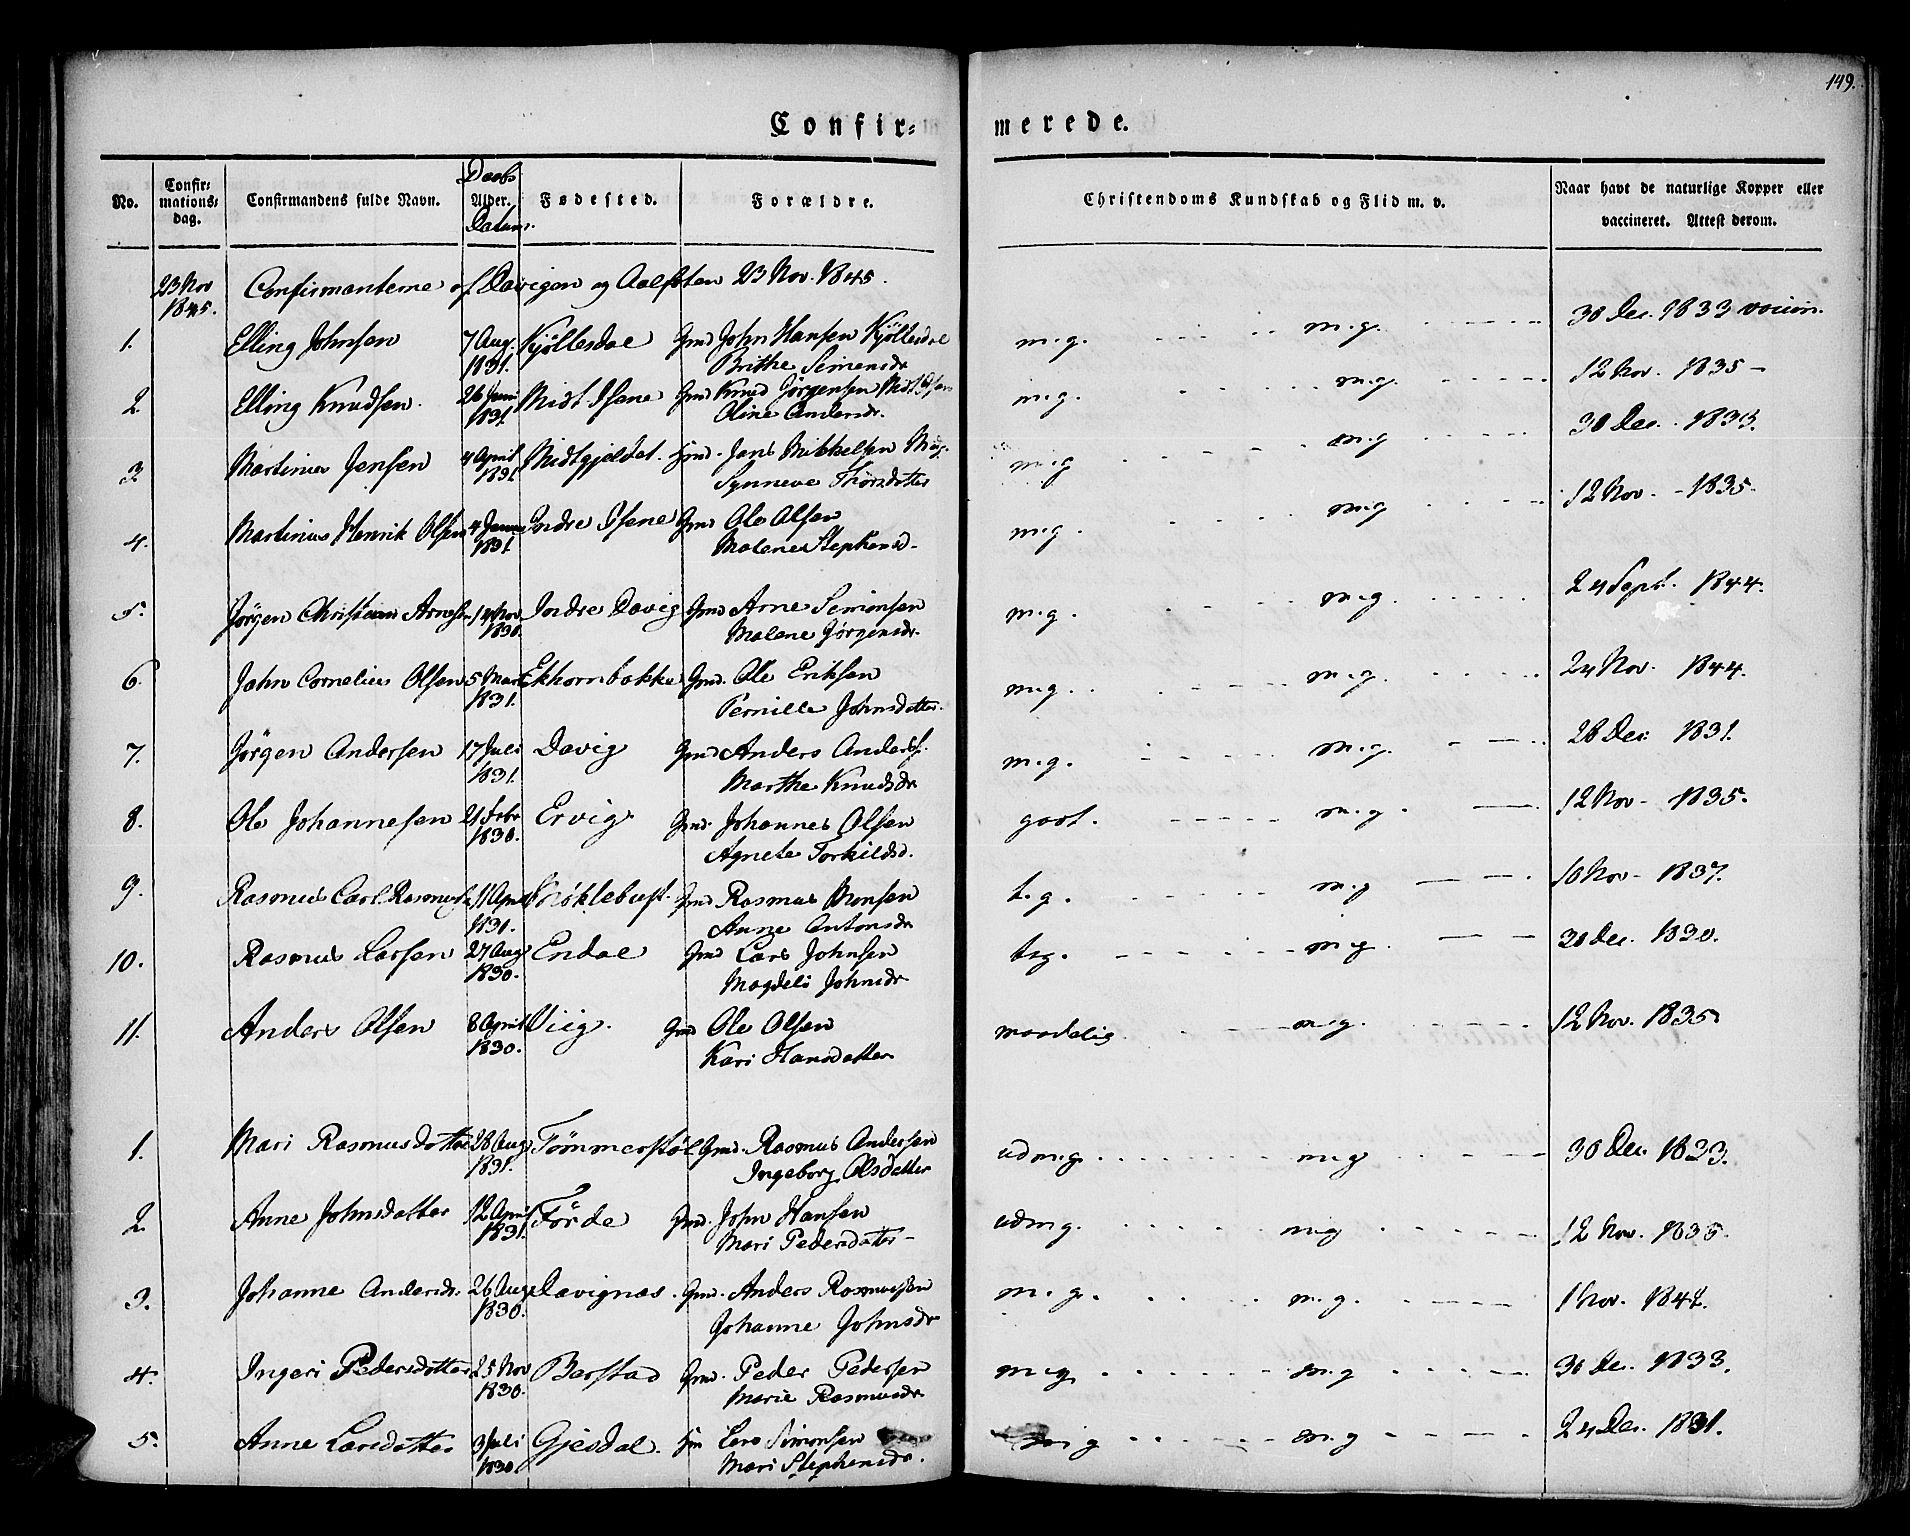 149.
Confir= merede.
No. Confir= mations= dag. Confirmandens fulde Navn. Daabs Alder. Datum. Fødested. Forældre. Christendoms Kundskab og Flid m. v. Naar havt de naturlige Kopper eller vaccineret. Attest derom.
23 Nov 1845. Confirmanterne af Davigen og Aalfoten 23 Nov. 1845.
1. Elling Johnsen 7 Aug. 1831. Kjøllesdal Gmd John Hansen Kjøllesdal m.g. m.g. 30 Dec. 1833 vaccin.
Brithe Simensdr
2. Elling Knudsen. 26 Juni 1831. Midt Isene Gmd Knud Jørgensen Midt Isene m.g. m.g. 12 Nov. 1835 -
Oline Andersdr.
3. Martinus Jensen 4 April 1831. Midtgjeldet. Hmd. Jens Mikkelsen m.g m.g 30 Dec. 1833.
Synneve Thorsdatter
4. Martinus Henrik Olsen 4 1831. Indre Isene Gmd Ole Olsen m.g. m.g 12 Nov. - 1835.
Malene Stephensd.
5. Jørgen Christian Arnesen 14 Nov 1830. Indre Davig Gmd Arne Simonsen m.g. m.g. 24 Sept. 1844.
Malene Jørgensdr.
6. John Cornelius Olsen 5 Mart 1831. Ekhornbakke Gmd. Ole Eriksen m.g. m.g. 24 Nov. 1844.
Pernille Johnsdatter.
7. Jørgen Andersen 17 Juli 1831. Davig Gmd Anders Anders. m.g. m.g. 28 Dec 1831.
Marthe Knudsdr
8. Ole Johannesen 21 Febr 1830. Ervig Gmd. Johannes Olsen godt. m.g. 12 Nov - 1835.
Agnete Torkildsd.
9. Rasmus Carl Rasmuss. 11 April 1831. Nøklebust. Gmd Rasmus Monsen t.g. m.g 10 Nov - 1837.
Anne Antonsdr
10. Rasmus Larsen 27 Aug 1830. Endal Gmd Lars Johnsen t.g. m.g. 30 Dec. 1830.
Magdeli Johnsdr
11. Anders Olsen 8 April 1830. Viig. Gmd Ole Olsen maadelig m.g. 12 Nov. 1835
Kari Hansdatter
1. Mari Rasmusdatter 28 Aug 1831. Tømmerstøl Gmd. Rasmus Andersen udm.g. m.g 30 Dec. 1833.
Ingeborg Olsdatter
2. Anne Johnsdatter 12 April 1831. Førde Gmd. John Hansen udm g. m.g 12 Nov. 1835.
Mari Pedersdatter -
3. Johanne Andersdr. 26 Aug 1830. Davignæs. Gmd. Anders Rasmussen m.g. m.g. 1 Nov. 1842.
Johanne Johnsdr
4. Ingeri Pedersdatter 25 Nov 1830. Barstad Gmd. Peder Pedersen m.g. m.g 30 Dec. 1833.
Marie Rasmusdr
5. Anne Larsdatter 3 Juli 1830. Gjesdal. Hm Lars Simonsen m.g m.g 24 Dec. 1831.
Mari Stephensdr.